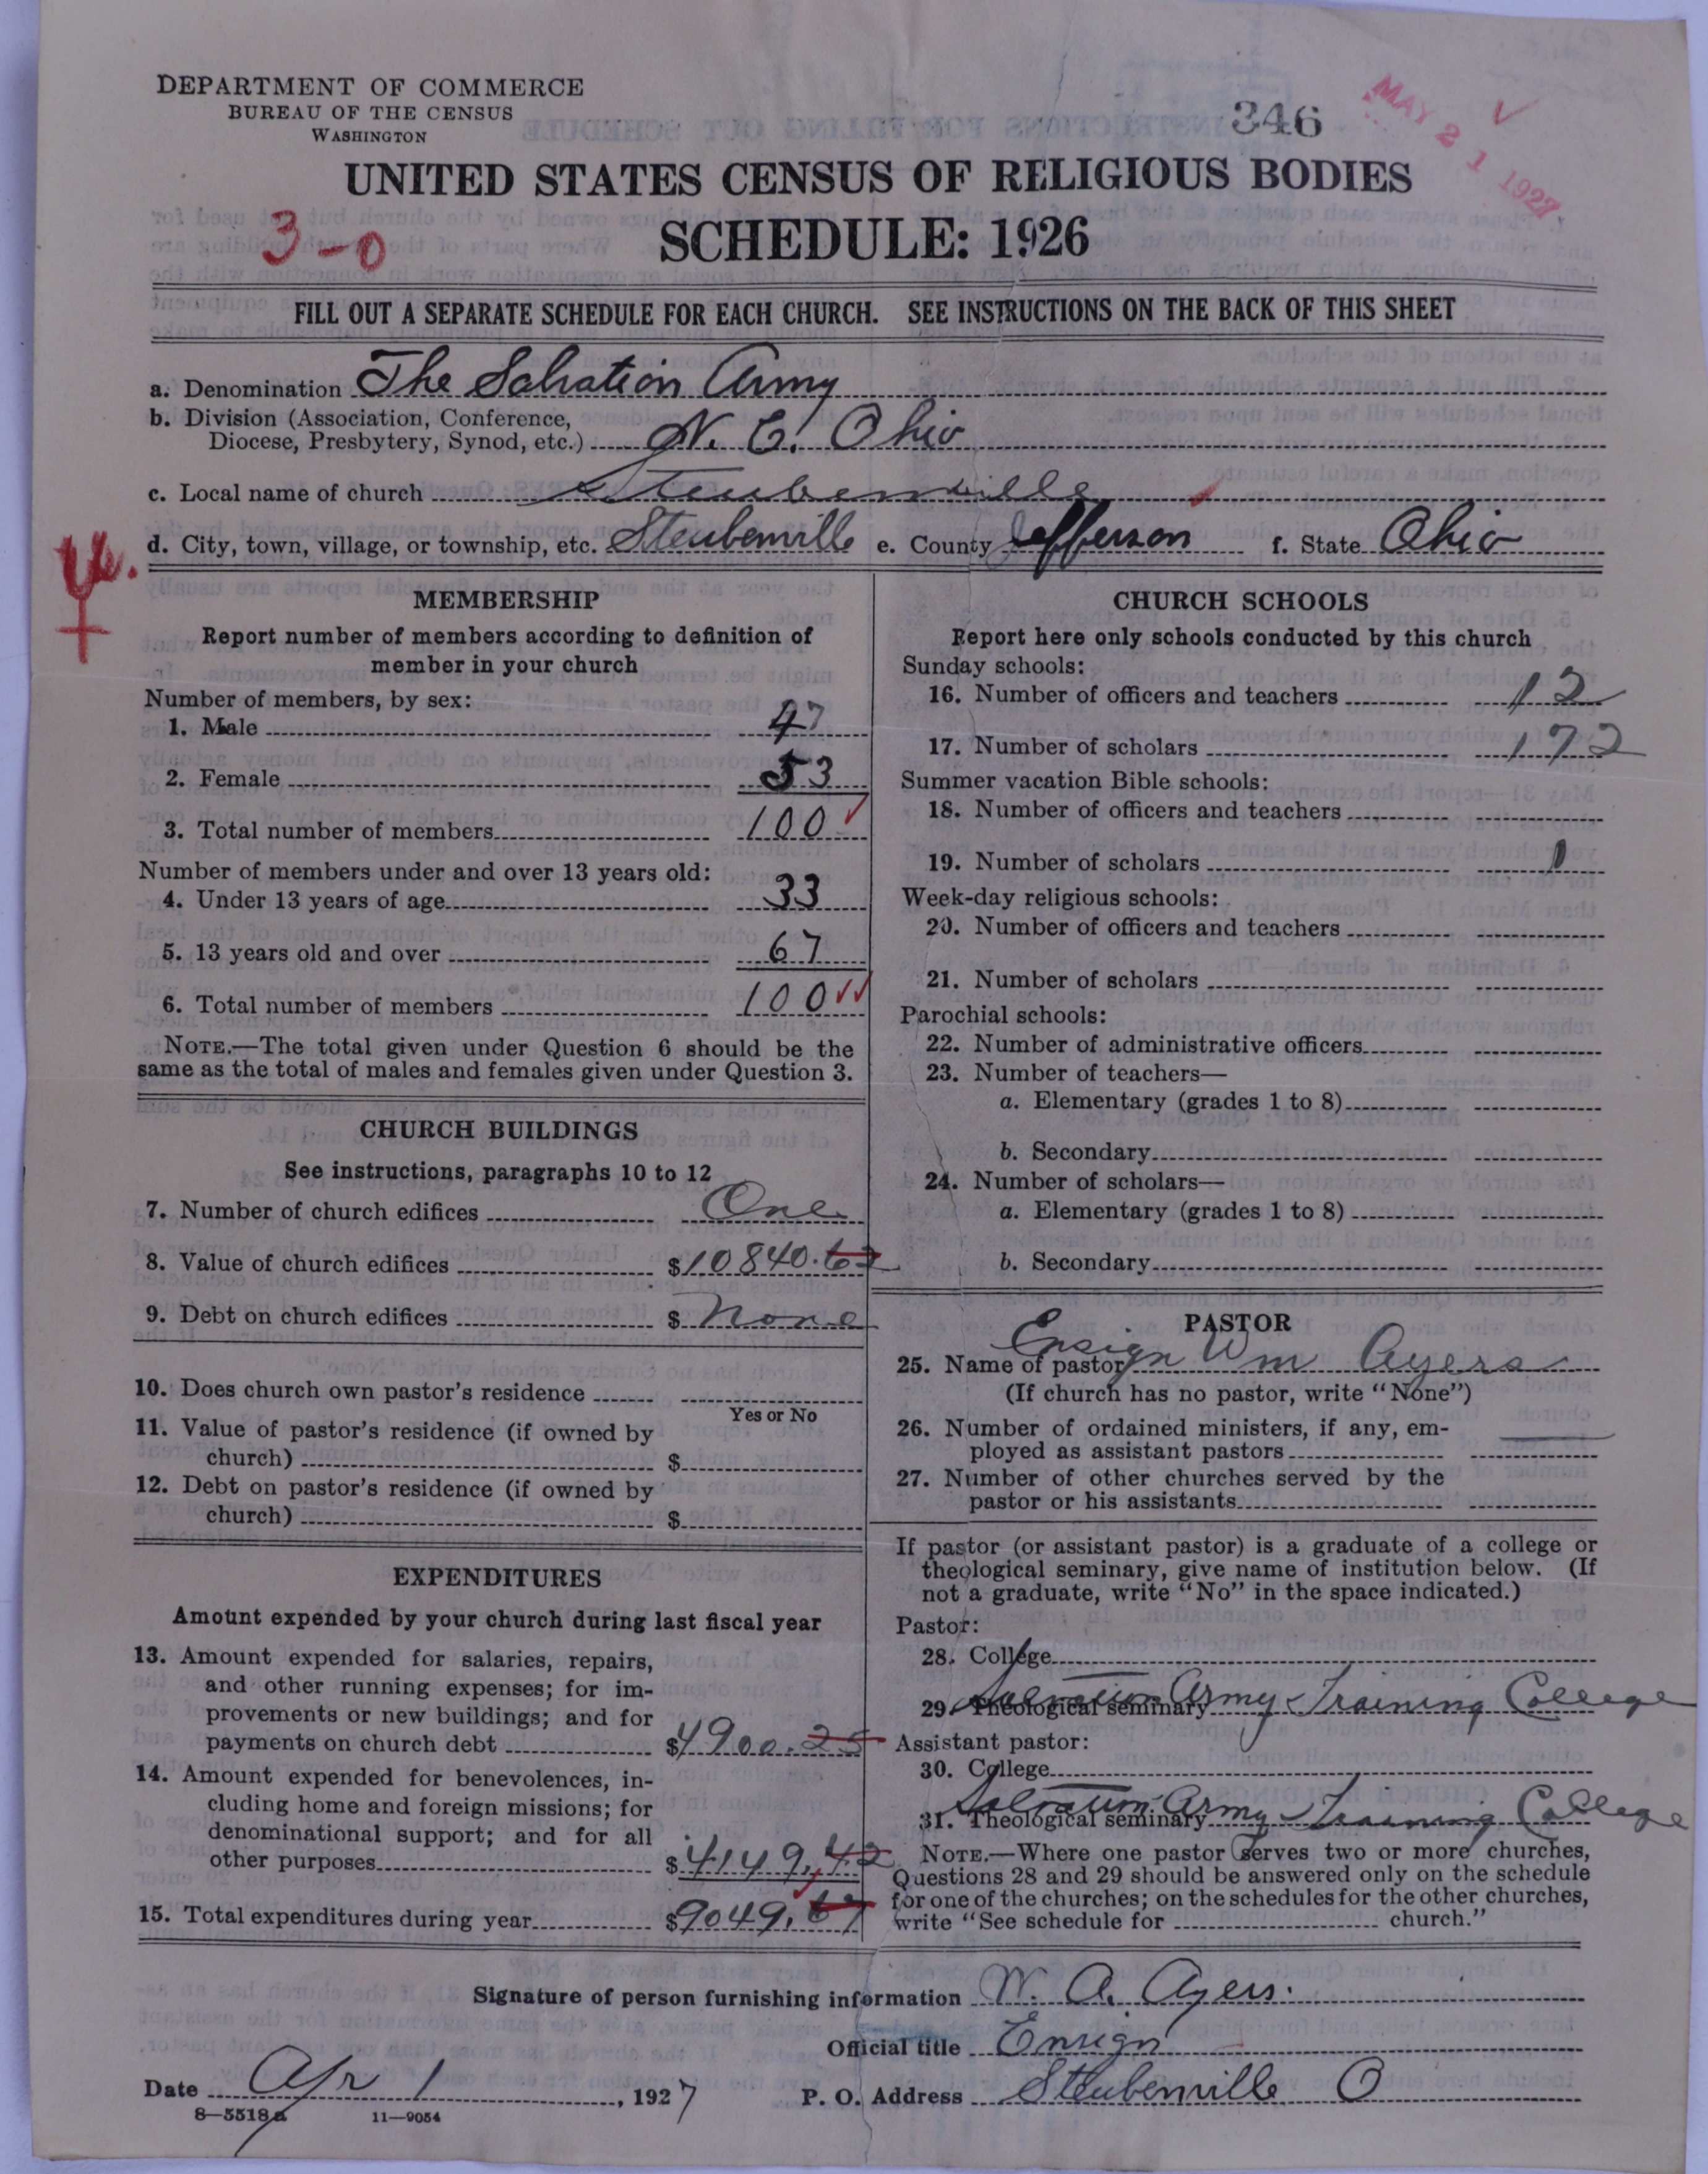 DEPARTMENT OF COMMERCE
BUREAU OF THE CENSUS
WASHINGTON
346
MAY 21 1927
UNITED STATES CENSUS OF RELIGIOUS BODIES
3-0
SCHEDULE: 1926
FILL OUT A SEPARATE SCHEDULE FOR EACH CHURCH. SEE INSTRUCTIONS ON THE BACK OF THIS SHEET
a. Denomination The Salvation Army
b. Division (Association, Conference,
Diocese, Presbytery, Synod, etc.) N. E. Ohio
c. Local name of church Steubenville
d. City, town, village, or township, etc. Steubenville e. County Jefferson f. State Ohio
MEMBERSHIP
Report number of members according to definition of
member in your church
Number of members, by sex:
1. Male 47
2. Female 53
3. Total number of members 100
Number of members under and over 13 years old:
4. Under 13 years of age 33
5. 13 years old and over 67
6. Total number of members 100
NOTE.—The total given under Question 6 should be the
same as the total of males and females given under Question 3.
CHURCH BUILDINGS
See instructions, paragraphs 10 to 12
7. Number of church edifices One
8. Value of church edifices $10840.62
9. Debt on church edifices $ None
10. Does church own pastor's residence
Yes or No
11. Value of pastor's residence (if owned by
church) $
12. Debt on pastor's residence (if owned by
church) $
EXPENDITURES
Amount expended by your church during last fiscal year
13. Amount expended for salaries, repairs,
and other running expenses; for im-
provements or new buildings; and for
payments on church debt $4900.25
14. Amount expended for benevolences, in-
cluding home and foreign missions; for
denominational support; and for all
other purposes $4149.42
15. Total expenditures during year $9049.67
CHURCH SCHOOLS
Report here only schools conducted by this church
Sunday schools:
16. Number of officers and teachers 12
17. Number of scholars 172
Summer vacation Bible schools:
18. Number of officers and teachers
19. Number of scholars
Week-day religious schools:
20. Number of officers and teachers
21. Number of scholars
Parochial schools:
22. Number of administrative officers
23. Number of teachers—
a. Elementary (grades 1 to 8)
b. Secondary
24. Number of scholars—
a. Elementary (grades 1 to 8)
b. Secondary
PASTOR
25. Name of pastor Ensign Wm Ayers
(If church has no pastor, write "None")
26. Number of ordained ministers, if any, em-
ployed as assistant pastors
27. Number of other churches served by the
pastor or his assistants
If pastor (or assistant pastor) is a graduate of a college or
theological seminary, give name of institution below. (If
not a graduate, write "No" in the space indicated.)
Pastor:
28. College
29. Theological seminary Salvation Army Training College
Assistant pastor:
30. College
31. Theological seminary Salvation Army Training College
NOTE.—Where one pastor serves two or more churches,
Questions 28 and 29 should be answered only on the schedule
for one of the churches; on the schedules for the other churches,
write "See schedule for church."
Signature of person furnishing information W. A. Ayers.
Official title Ensign
Date Apr 1, 1927 P. O. Address Steubenville O
8—5518a 11—9054